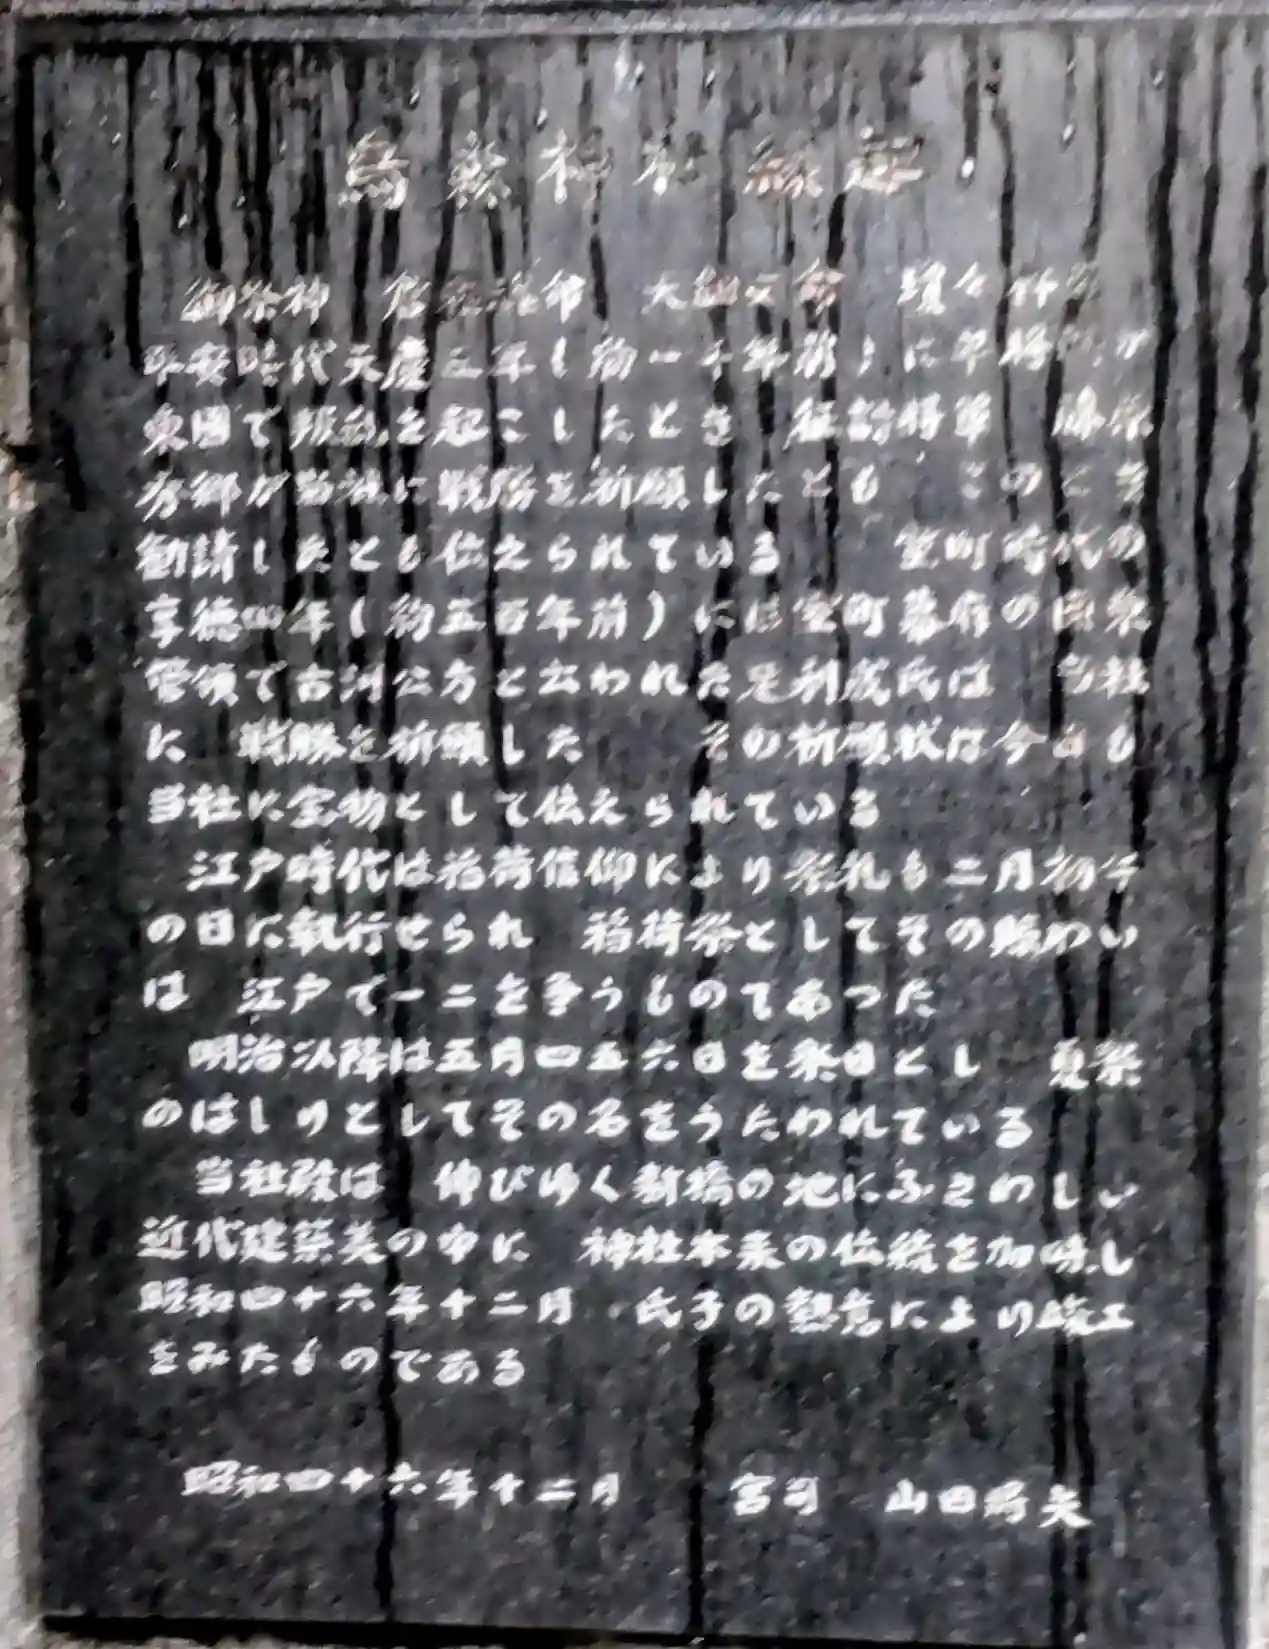 烏森神社縁起
御祭神 倉稲魂命 天鈿女命 瓊々杵尊
平安時代天慶三年(約一千年前)に平将門が
東国で叛乱を起こしたとき 征討将軍 藤原
秀郷が当社に戦勝を祈願したとも このとき
勧請したとも伝えられている 室町時代の
享徳四年(約五百年前)には室町幕府の関東
管領で古河公方と云われた足利成氏は 当社
に 戦勝を祈願した その祈願状は今日も
当社に宝物として伝えられている
江戸時代は稲荷信仰により祭礼も二月初午
の日に執行せられ 稲荷祭としてその賑わい
は 江戸で一二を争うものであった
明治以降は五月四五六日を祭日とし 夏祭
のはしりとしてその名をうたわれている
当社殿は 伸びゆく新橋の地にふさわしい
近代建築美の中に 神社本来の伝統を加味し
昭和四十六年十二月 氏子の熱意により竣工
をみたものである
昭和四十六年十二月 宮司 山田